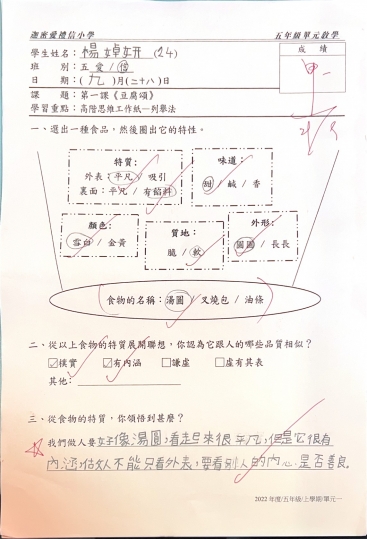 迦密愛禮信小學 五年級單元教學
學生姓名：楊婥妍 (24) 成績
班別：五愛/信
日期：(九)月(二十八)日
課題：第一課《豆腐頌》
學習重點：高階思維工作紙—列舉法
一、選出一種食品，然後圈出它的特性。
特質：
外表：平凡 / 吸引
裏面：平凡 / 有餡料
味道：
甜 / 鹹 / 香
顏色：
雪白 / 金黃
質地：
脆 / 軟
外形：
圓圓 / 長長
(食物的名稱：湯圓 / 叉燒包 / 油條)
二、從以上食物的特質展開聯想，你認為它跟人的哪些品質相似？
☑樸實 ☑有內涵 □謙虛 □虛有其表
其他：
三、從食物的特質，你領悟到甚麼？
我們做人要好像湯圓，看起來很平凡，但是它很有
內涵，做人不能只看外表，要看別人的內心是否善良。
2022年度/五年級/上學期/單元一